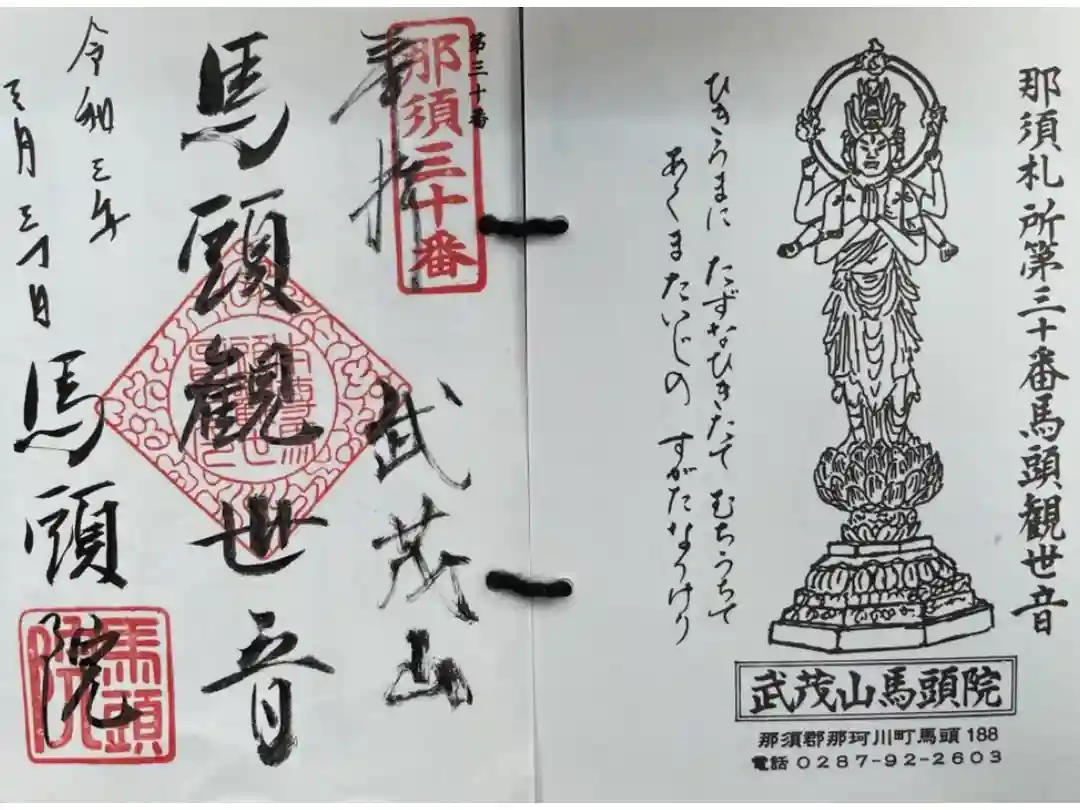 那須札所第三十番馬頭観世音
武茂山馬頭院
那須郡那珂川町馬頭188
電話0287-92-2603
ひきうまに たずなひきたて むちうちて
あくまたいじの すがたなりけり
第三十番
那須三十番
奉拝
武茂山
馬頭観世音
令和三年
三月三十日
馬頭院
馬頭院